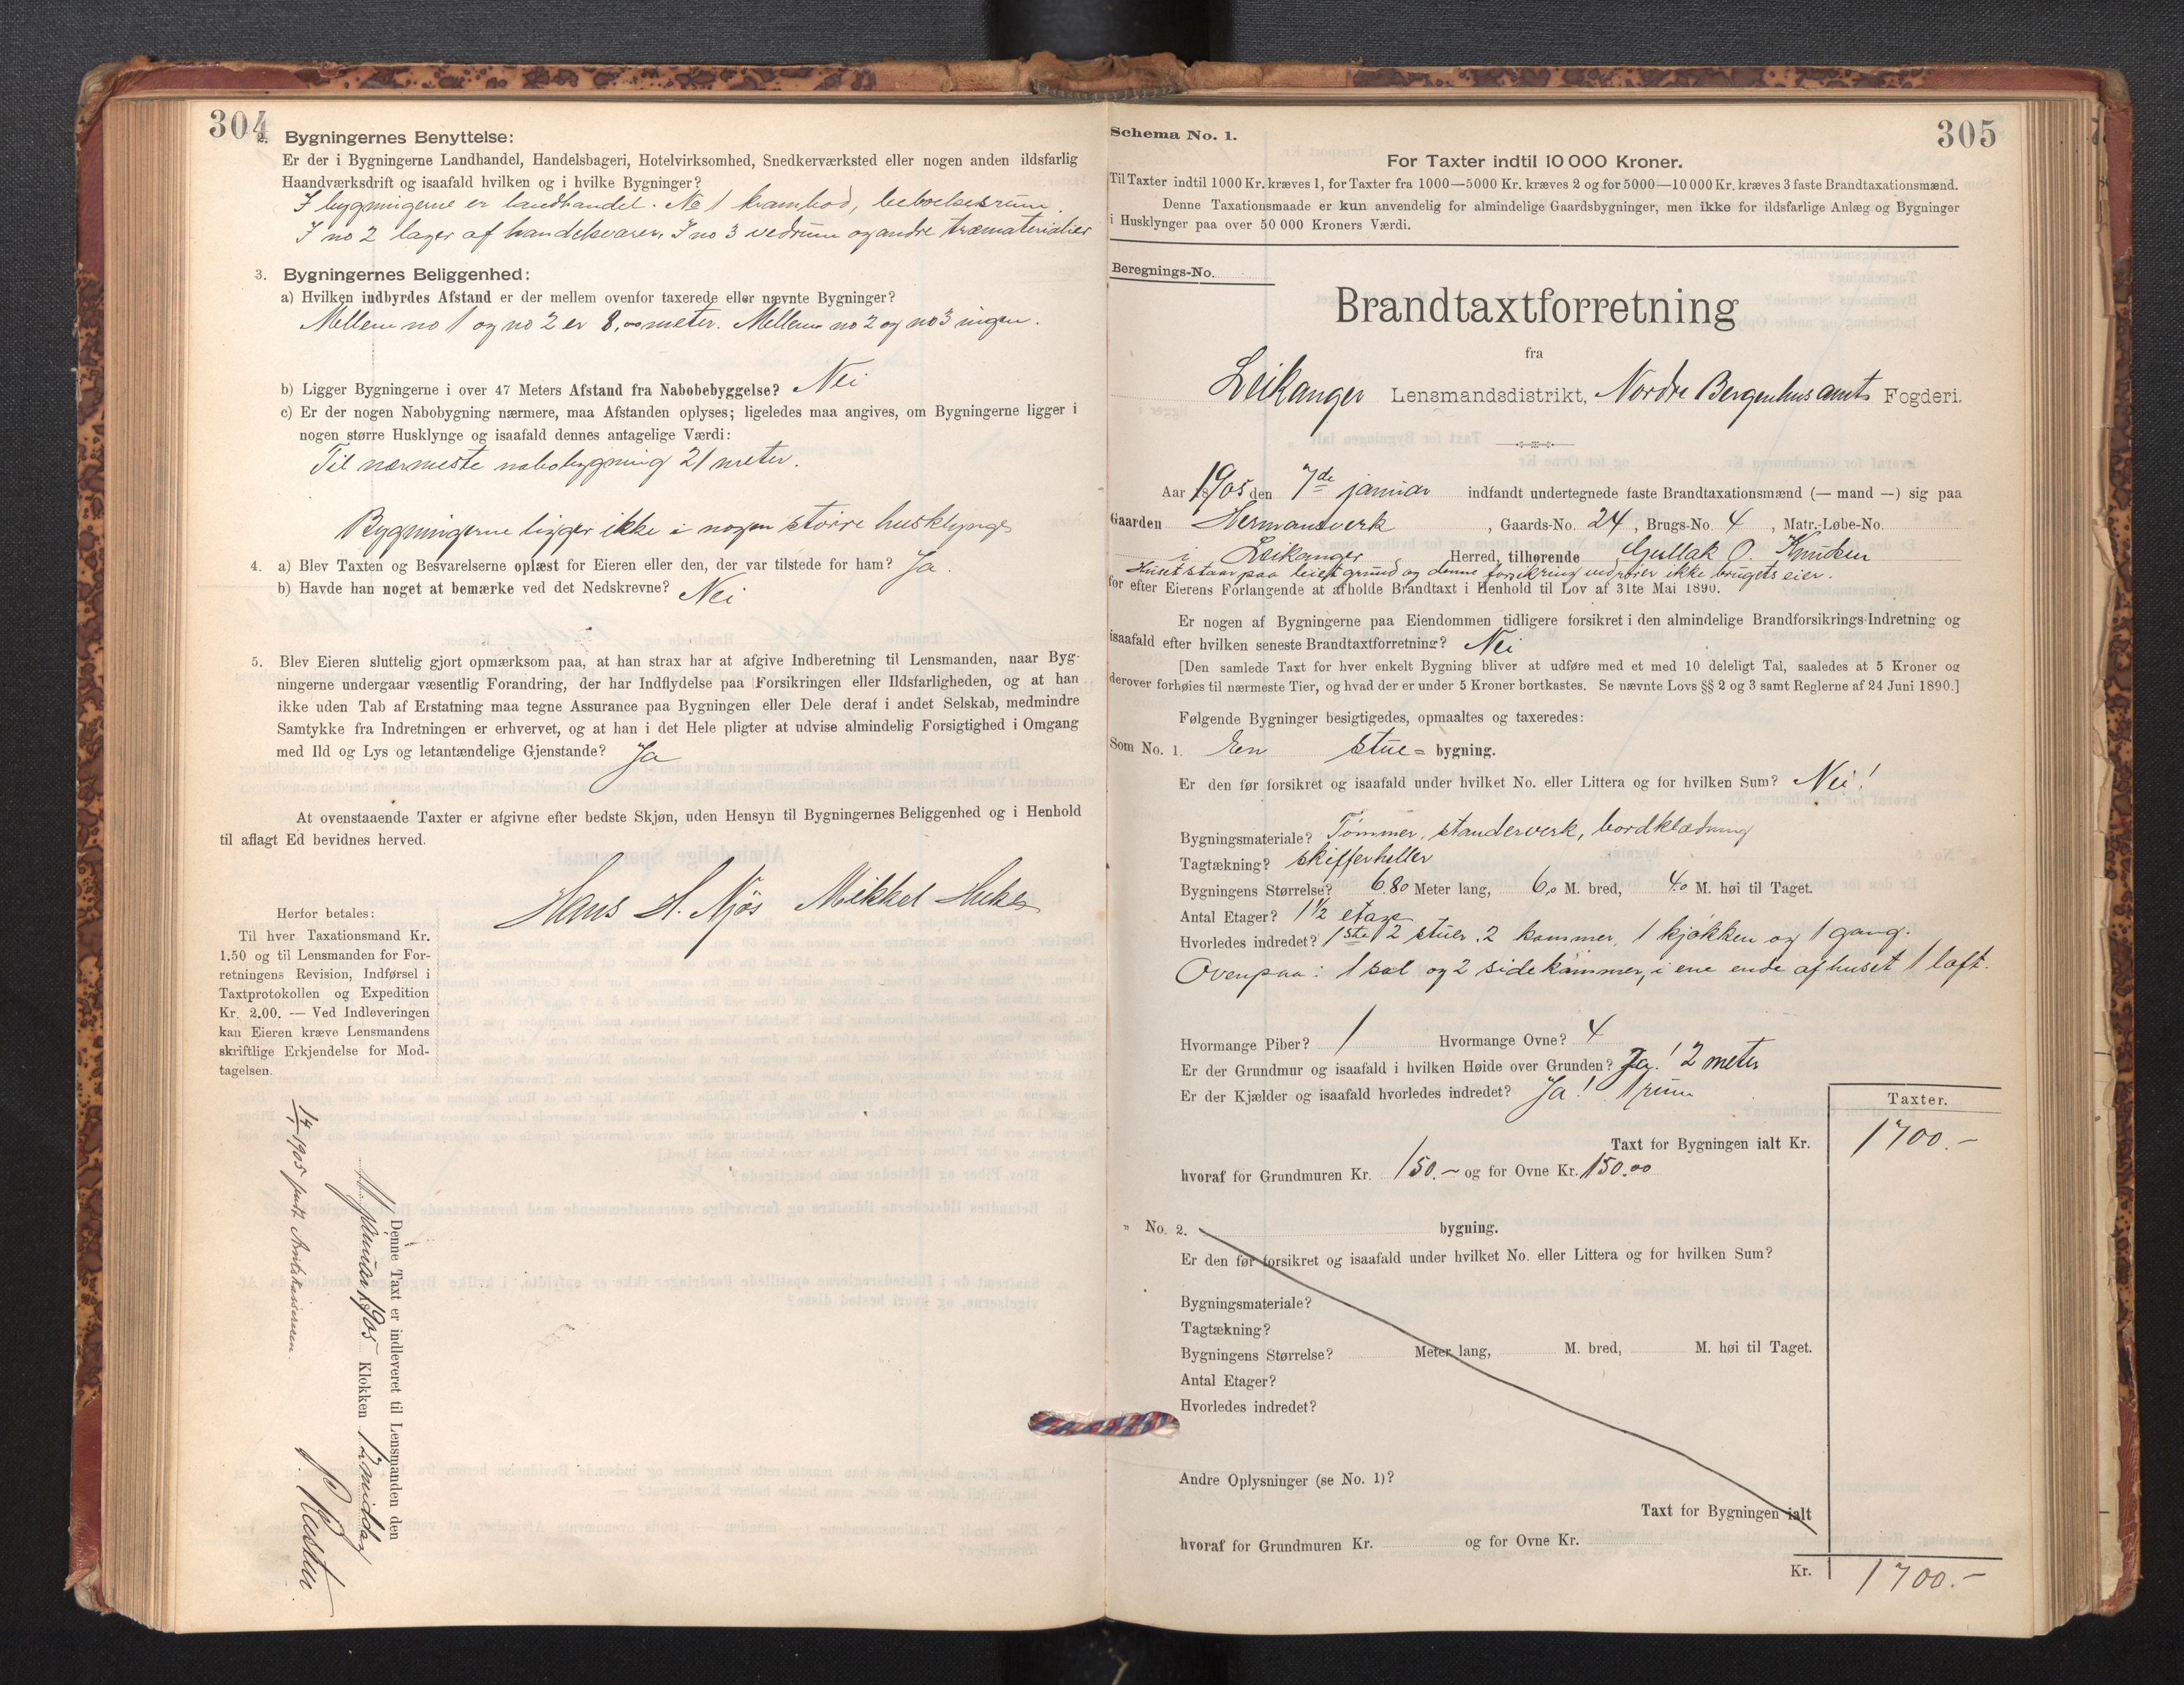 304
2. Bygningernes Benyttelse:
Er der i Bygningerne Landhandel, Handelsbageri, Hotelvirksomhed, Snedkerværksted eller nogen anden ildsfarlig
Haandværksdrift og isaafald hvilken og i hvilke Bygninger?
I bygningerne er landhandel. No 1 krambod, beboelsesrum.
I no 2 lager af handelsvarer. I no 3 vedrum og andre træmaterialier
3. Bygningernes Beliggenhed:
a) Hvilken indbyrdes Afstand er der mellem ovenfor taxerede eller nævnte Bygninger?
Mellem no 1 og no 2 er 8,00 meter. Mellem no 2 og no 3 ingen.
b) Ligger Bygningerne i over 47 Meters Afstand fra Nabobebyggelse? Nei
c) Er der nogen Nabobygning nærmere, maa Afstanden oplyses; ligeledes maa angives, om Bygningerne ligger i
nogen større Husklynge og isaafald dennes antagelige Værdi:
Til nærmeste nabobygning 21 meter.
Bygningerne ligger ikke i nogen større husklynge
4. a) Blev Taxten og Besvarelserne oplæst for Eieren eller den, der var tilstede for ham? Ja.
b) Havde han noget at bemærke ved det Nedskrevne? Nei
5. Blev Eieren sluttelig gjort opmærksom paa, at han strax har at afgive Indberetning til Lensmanden, naar Byg-
ningerne undergaar væsentlig Forandring, der har Indflydelse paa Forsikringen eller Ildsfarligheden, og at han
ikke uden Tab af Erstatning maa tegne Assurance paa Bygningen eller Dele deraf i andet Selskab, medmindre
Samtykke fra Indretningen er erhvervet, og at han i det Hele pligter at udvise almindelig Forsigtighed i Omgang
med Ild og Lys og letantændelige Gjenstande? Ja
At ovenstaaende Taxter er afgivne efter bedste Skjøn, uden Hensyn til Bygningernes Beliggenhed og i Henhold
til aflagt Ed bevidnes herved.
Hans H. Njøs Mikkel Huke
Herfor betales:
Til hver Taxationsmand Kr.
1.50 og til Lensmanden for For-
retningens Revision, Indførsel i
Taxtprotokollen og Expedition
Kr. 2.00. — Ved Indleveringen
kan Eieren kræve Lensmandens
skriftlige Erkjendelse for Mod-
tagelsen.
Denne Taxt er indleveret til Lensmanden den
11 januar 1905 Klokken 12 middag
1905 Amtskassereren.
305
Schema No. 1.
For Taxter indtil 10 000 Kroner.
Til Taxter indtil 1000 Kr. kræves 1, for Taxter fra 1000—5000 Kr. kræves 2 og for 5000—10 000 Kr. kræves 3 faste Brandtaxationsmænd.
Denne Taxationsmaade er kun anvendelig for almindelige Gaardsbygninger, men ikke for ildsfarlige Anlæg og Bygninger
i Husklynger paa over 50 000 Kroners Værdi.
Beregnings-No.
Brandtaxtforretning
fra
Leikanger Lensmandsdistrikt, Nordre Bergenhus amts Fogderi.
Aar 1905 den 7de januar indfandt undertegnede faste Brandtaxationsmænd (— mand —) sig paa
Gaarden Hermansverk, Gaards-No. 24, Brugs-No. 4, Matr.-Løbe-No.
i Leikanger Herred, tilhørende Gullak O. Knudsen
Huset staar paa leiet grund og denne forsikring vedrører ikke brugets eier.
for efter Eierens Forlangende at afholde Brandtaxt i Henhold til Lov af 31te Mai 1890.
Er nogen af Bygningerne paa Eiendommen tidligere forsikret i den almindelige Brandforsikrings-Indretning og
isaafald efter hvilken seneste Brandtaxtforretning? Nei
[Den samlede Taxt for hver enkelt Bygning bliver at udføre med et med 10 deleligt Tal, saaledes at 5 Kroner og
derover forhøies til nærmeste Tier, og hvad der er under 5 Kroner bortkastes. Se nævnte Lovs §§ 2 og 3 samt Reglerne af 24 Juni 1890.]
Følgende Bygninger besigtigedes, opmaaltes og taxeredes:
Som No. 1. Een stue= bygning.
Er den før forsikret og isaafald under hvilket No. eller Littera og for hvilken Sum? Nei!
Bygningsmateriale? Tømmer, standerverk, bordklædning
Tagtækning? skifferheller
Bygningens Størrelse? 6.80 Meter lang, 6.0 M. bred, 4.0 M. høi til Taget.
Antal Etager? 1 1/2 etage
Hvorledes indredet? 1ste 2 stuer, 2 kammer, 1 kjøkken og 1 gang.
Ovenpaa: 1 sal og 2 sidekammer, i ene ende af huset 1 loft.
Hvormange Piber? 1 Hvormange Ovne? 4
Er der Grundmur og isaafald i hvilken Høide over Grunden? Ja! 2 meter
Er der Kjælder og isaafald hvorledes indredet? Ja! 1 rum
Taxter.
Taxt for Bygningen ialt Kr. 1700.-
hvoraf for Grundmuren Kr. 150.- og for Ovne Kr. 150.00
" No. 2. bygning.
Er den før forsikret og isaafald under hvilket No. eller Littera og for hvilken Sum?
Bygningsmateriale?
Tagtækning?
Bygningens Størrelse? Meter lang, M. bred, M. høi til Taget.
Antal Etager?
Hvorledes indredet?
Andre Oplysninger (se No. 1)?
Taxt for Bygningen ialt
hvoraf for Grundmuren Kr. og for Ovne Kr.
Kr. 1700.-